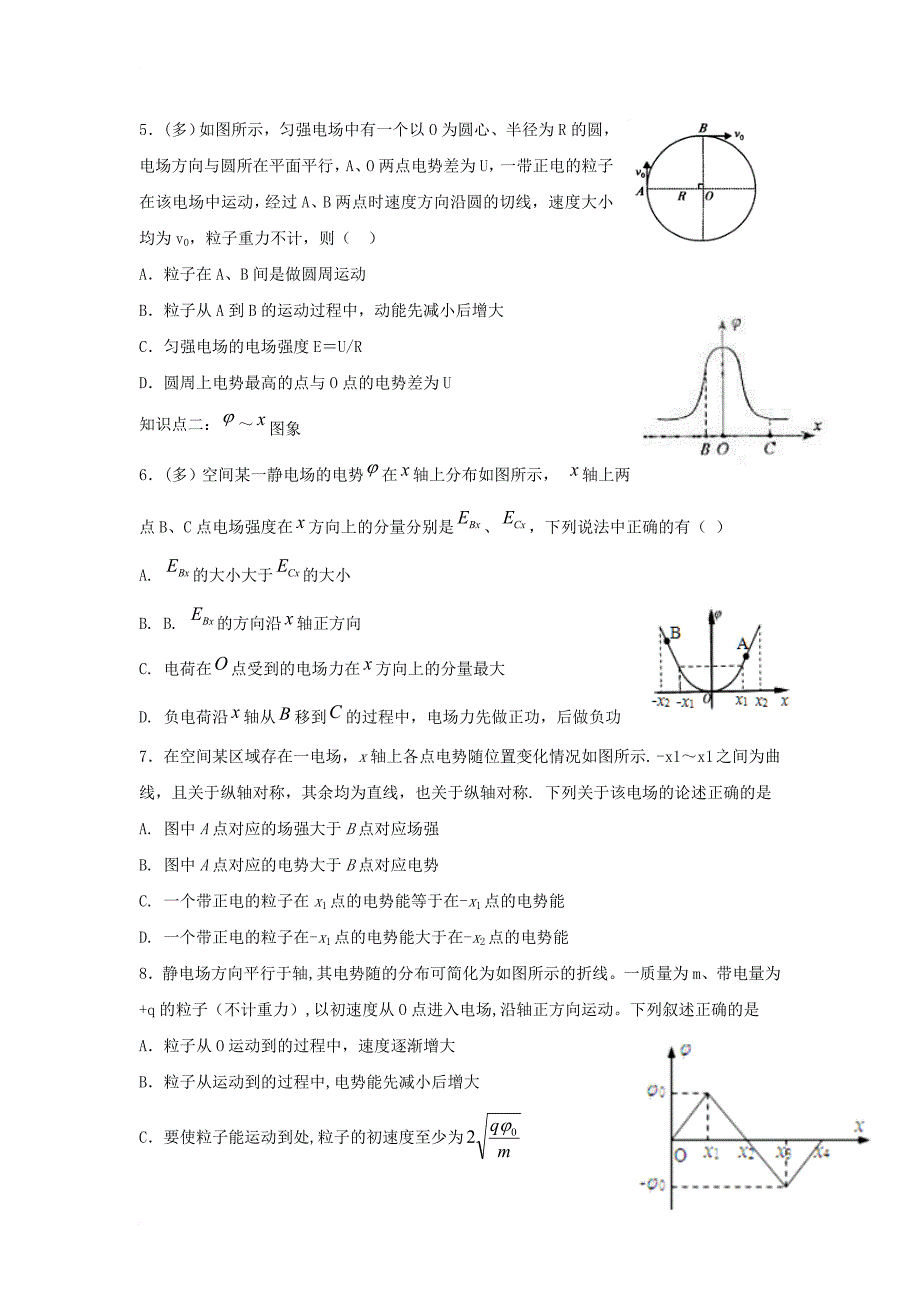 5．(多)如图所示，匀强电场中有一个以 O 为圆心、半径为 R 的圆，
电场方向与圆所在平面平行，A、O 两点电势差为 U，一带正电的粒子
在该电场中运动，经过 A、B 两点时速度方向沿圆的切线，速度大小
均为 v₀，粒子重力不计，则（　）
A．粒子在 A、B 间是做圆周运动
B．粒子从 A 到 B 的运动过程中，动能先减小后增大
C．匀强电场的电场强度 E＝U/R
D．圆周上电势最高的点与 O 点的电势差为 U
B v₀
v₀
A R O
知识点二：φ～x 图象
φ
B O C x
6．(多)空间某一静电场的电势φ在 x 轴上分布如图所示， x 轴上两
点 B、C 点电场强度在 x 方向上的分量分别是 E_Bx、E_Cx，下列说法中正确的有（ ）
A. E_Bx 的大小大于 E_Cx 的大小
B. B. E_Bx 的方向沿 x 轴正方向
C. 电荷在 O 点受到的电场力在 x 方向上的分量最大
D. 负电荷沿 x 轴从 B 移到 C 的过程中，电场力先做正功，后做负功
φ
B A
-x₂ -x₁ O x₁ x₂ x
7．在空间某区域存在一电场，x 轴上各点电势随位置变化情况如图所示.-x1～x1 之间为曲
线，且关于纵轴对称，其余均为直线，也关于纵轴对称. 下列关于该电场的论述正确的是
A. 图中 A 点对应的场强大于 B 点对应场强
B. 图中 A 点对应的电势大于 B 点对应电势
C. 一个带正电的粒子在 x₁ 点的电势能等于在-x₁ 点的电势能
D. 一个带正电的粒子在-x₁ 点的电势能大于在-x₂ 点的电势能
8．静电场方向平行于轴,其电势随的分布可简化为如图所示的折线。一质量为 m、带电量为
+q 的粒子（不计重力）,以初速度从 O 点进入电场,沿轴正方向运动。下列叙述正确的是
A．粒子从 O 运动到的过程中，速度逐渐增大
B．粒子从运动到的过程中,电势能先减小后增大
C．要使粒子能运动到处,粒子的初速度至少为 2√(qφ₀/m)
φ
φ₀
x
O x₁ x₂ x₃ x₄
-φ₀